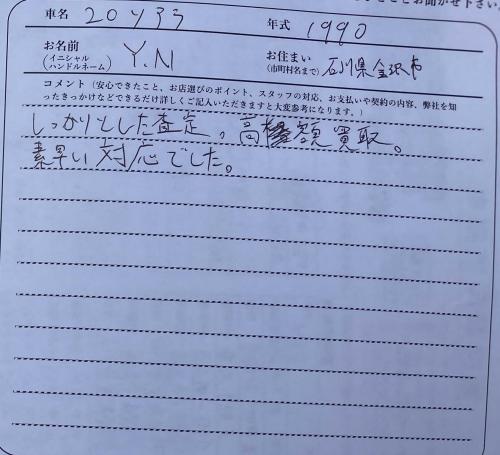 とお聞かせ下さい
車名 20ソアラ 年式 1990
お名前 (イニシャル ハンドルネーム) Y.N お住まい (市町村名まで) 石川県金沢市
コメント (安心できたこと、お店選びのポイント、スタッフの対応、お支払いや契約の内容、弊社を知
ったきっかけなどできるだけ詳しくご記入いただきますと大変参考になります。)
しっかりとした査定。高額買取。
素早い対応でした。